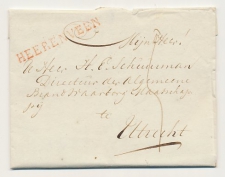 HEERENVEEN
Mijn Heer!
de Heer Th. E. Schuurman
Directeur des Algemeene
Brand Waarborg Maatschap
pij
te
Utrecht